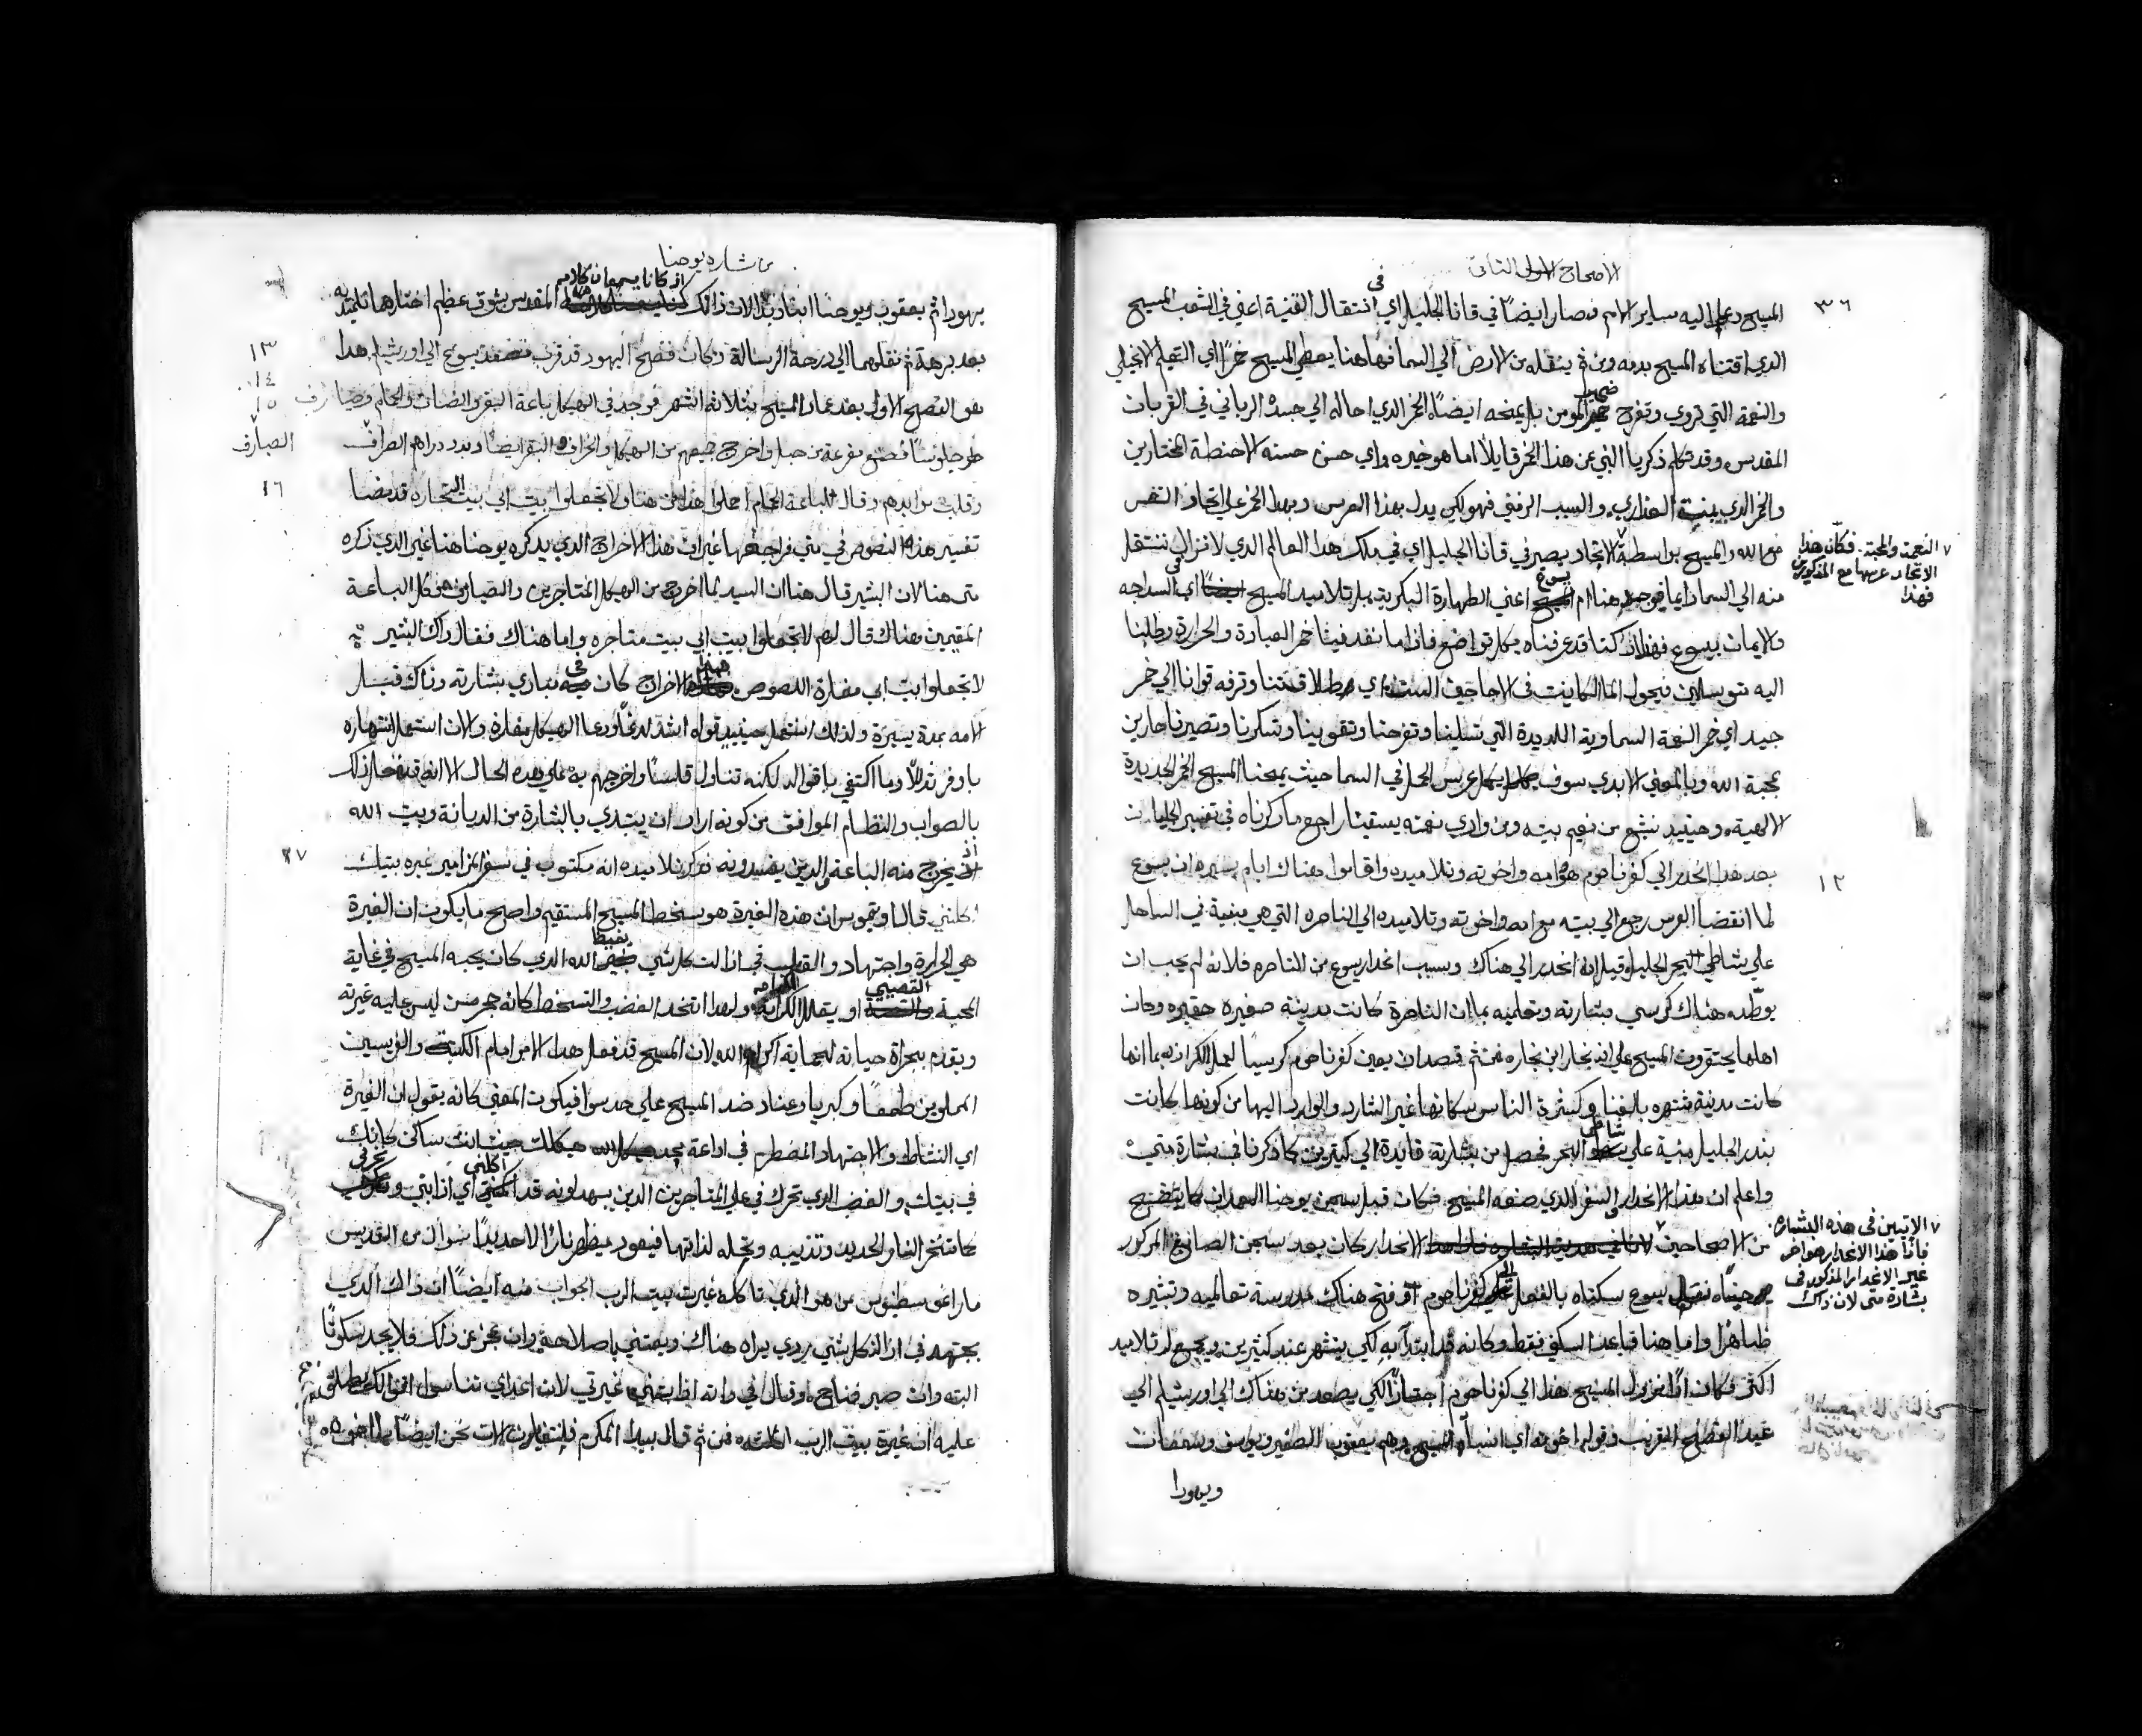 الاصحاح الاولى الثانى
٣٦
المسيح ودعى اليه ساير الامم وصار ايضًا في قانا الجليل اي في انتقال القنية اعني في الشعب المسيحي
الذي اقتناه المسيح بدمه ومن ثم ينقله من الارض الي السما فها هنا يعطي المسيح خمرًا اي التعليم الانجيلي
والنعمة التي تروي وتفرح ضمير المومن بل يمنحه ايضًا الخمر الذي احاله الي جسده الرباني في القربان
المقدس وقد تكلم زكريا النبي عن هذا الخمر قايلًا اما هو خيره واي حسن حسنه الا حنطة المختارين
والخمر الذي ينبت العذاري والسبب الرمزي فهو لكي يدل بهذا العرس وبهذا الخمر علي اتحاد النفس
مع الله والمسيح بواسطة
٧ النعمة والمحبة. فكانّ هذا
الاتحاد عرسها مع المذكورين
فهذا
الاتحاد يصير في قانا الجليل اي في ملك هذا العالم الذي لا نزال في ننتقل
منه الي السما دايما فيوجد هنا ام يسوع اعني الطهارة البكرية بل وتلاميذ المسيح اي السداجه
والايمان بيسوع فهذا كنا قد عرفناه بكل تواضع فاذا ما نفد فينا خمر العبادة والحرارة وطلبنا
اليه متوسلين فيحول الما الكاين في الاجاجين الست اي وترفه قوانا الي خمر
جيد اي خمر النعمة السماوية اللذيذة التي تسلينا وتفرحنا وتقوينا وتسكرنا وتصيرنا حارين
بمحبة الله وبالمعني الابدي سوف يكمل عرس الحمل في السما حيث يمنحنا المسيح الخمر الجديدة
الالهية وحينيذ نشبع من نعيم بيته ومن وادي نعمته يسقينا راجع ما ذكرناه في تفسير الجليان
١٢
بعد هذا انحدر الي كفرناحوم هو وامه واخوته وتلاميذه واقاموا هناك ايام يسيره ان يسوع
لما انقضا العرس رجع الي بيته مع امه واخوته وتلاميذه الي الناصره التي هي مبنية في الساحل
علي شاطي البحر الجليل وقيل انه انحدر الي هناك وبسبب انحدار يسوع من الناصره فلانه لم يجب ان
يوطّد هناك كرسي بشارته وتعليمه بما ان الناصرة كانت مدينة صغيرة حقيره وكان
اهلها يحتقرون المسيح علي انه نجار ابن نجاره فمن ثم قصد ان يعين كفرناحوم كرسيًا لعمل الكرازه بما انها
كانت مدينة مشتهره بالغنا وكثرة الناس سكانها غير الشارد والوارد اليها من كونها كانت
بندر الجليل مبنية علي شاطي البحر فحصل من بشارته فايدة الي كثيرين كما ذكرنا في بشارة متي
واعلم ان هذا الانحدار والسفر الذي صنعه المسيح فكان قبل سجن يوحنا المعمدان كما يتضح
من الاصحاحين
٧ الاتيين في هذه البشاره.
فاذًا هذا الانحدار هو اخر
غير الانحدار المذكور في
بشارة متى لان ذاك
الانحدار كان بعد سجن الصابغ المذكور
وحينًا نقل يسوع سكناه بالفعل الى كفرناحوم وفتح هناك مدرسة تعاليمه وتبشيره
ظاهرًا واما هنا فباعد السكني فقط وكانه قد ابتدا به لكي يشتهر عند كثيرين ويجمع له تلاميذ
اكثر فكان اذًا نزول المسيح هذا الي كفرناحوم اجتازًا لكي يصعد من هناك الي اورشليم الي
عيد الفصح القريب وقوله اخوته اي انسبآء المسيح وهم يعقوب الصغير ويوسف وسمعان
ويهودا
من بشاره يوحنا
يهودا ثم يعقوب ويوحنا ابنا زبدا لان ذانك اذ كانا يسمعان كلامه المقدس بشوق عظيم اختارهما تلميذيه
١٣
بعد برهة ثم نقلهما الي درجة الرسالة وكان فصح اليهود قد قرب فصعد يسوع الي اورشليم هذا
١٤
١٥
هو الفصح الاول بعد عماد المسيح بثلاثة اشهر فوجد في الهيكل باعة البقر والضان والحمام وصيارف
الصيارف
جلوسًا فصنع مقرعة من حبل واخرج جميعهم من الهيكل والخراف والبقر ايضًا وبدد دراهم الصراف
١٦
وقلب موايدهم وقال لباعة الحمام احملوا هذا من هنا ولا تجعلوا بيت ابي بيت التجاره قد مضا
تفسير هذه النصوص في متي فراجعها غير ان هذا الاخراج الذي يذكره يوحنا هنا غير الذي ذكره
متي هنا لان البشير قال هنا ان السيد لما اخرج من الهيكل المتاجرين والصيارف وكل الباعة
المقيمين هناك قال لهم لا تجعلوا بيت ابي بيت متاجره واما هناك فقال ذاك البشير
لا تجعلوا بيت ابي مغارة اللصوص فهذا الاخراج كان في مبادي بشارته وذاك قبل
الامه بمدة يسيرة ولذلك استعمل حينيذ قوله اشد لدغًا ودعا الهيكل مغارة والان استعمل انتهاره
باوفر تدللًا وما اكتفي باقواله لكنه تناول قلسًا واخرجهم به علي هذه الحال الا انه قد فعل ذلك
بالصواب والنظام الموافق من كونه اراد ان يبتدي بالبشارة من الديانة وبيت الله
١٧
اذ يخرج منه الباعة والذين يفسدونه تذكر تلاميذه انه مكتوب في سفر المزامير غيره بيتك
اكلتني قالا وتموس ان هذه الغيرة هو سخط المسيح المستقيم واصح ما يكون ان الغيرة
هي الحرارة واجتهاد والقلب في ازالت كل شي يغيظ الله الذي كان يحبه المسيح في غاية
المحبة او يقلل الكرامه ولهذا اتخد الغضب والتسخط كانه جرمن ليس عليه غيرته
ويقدم بجراة حياته لحماية اكرام الله لان المسيح قد فعل هذا الامر امام الكتبة والفريسيين
المملوين طمعًا وكبريا وعناد ضد المسيح علي حد سوا فيكون المعني كانه يقول ان الغيرة
اي النشاط والاجتهاد المضطرم في اذاعة مجد هيكلك حيث انت ساكن كانك
في بيتك والغضب الذي تحرك في علي المتاجرين الذين يبهدلونه قد اكلتني اي اذابتني وتحرقني
كما تنخر النار الحديد وتذيبه وتحيله لذاتها فيعود ميظهر نارًا لا حديدًا سوال من القديس
مار اغوسطينوس من هو الذي تاكله غيرت بيت الرب الجواب منه ايضًا ان ذاك الذي
يجتهد في ازالت كل شي ردي يراه هناك ويعتني باصلاحه وان عجز عن ذلك فلا يجد سكوتًا
البته وان صبر فناح وقال في ذاته اضنتني غيرتي لان اعداي تناسوا اقوالك
عليه ان غيرة بيت الرب اكلته فمن ثم قال بيدا المكرم فلنغارن الان نحن ايضًا يا اخوه